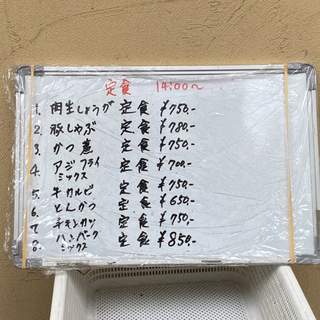 定食 14:00〜
1. 肉生しょうが 定食 ¥750.-
2. 豚しゃぶ 定食 ¥780.-
3. かつ煮 定食 ¥750.-
4. アジフライミックス 定食 ¥700.-
5. 牛カルビ 定食 ¥750.-
6. とんかつ 定食 ¥650.-
7. チキンカツ 定食 ¥750.-
8. ハンバーグミックス 定食 ¥850.-